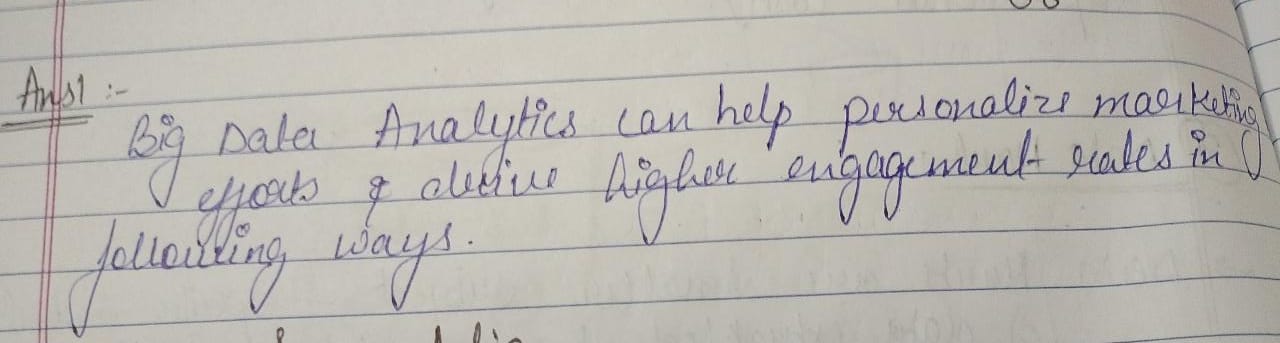 Ans1 :-
Big Data Analytics can help personalize marketing
efforts & derive higher engagement rates in
following ways.